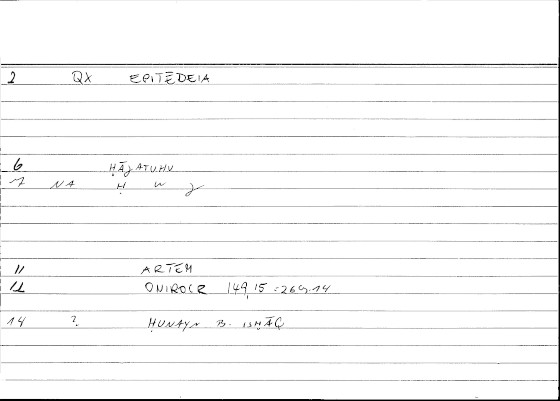 2 QX EPITĒDEIA
6 ḤĀǦATUHU
7 NA Ḥ W Ǧ
11 ARTEM
12 ONIROCR 149,15 : 264.14
14 ? ḤUNAYN B. ISḤĀQ